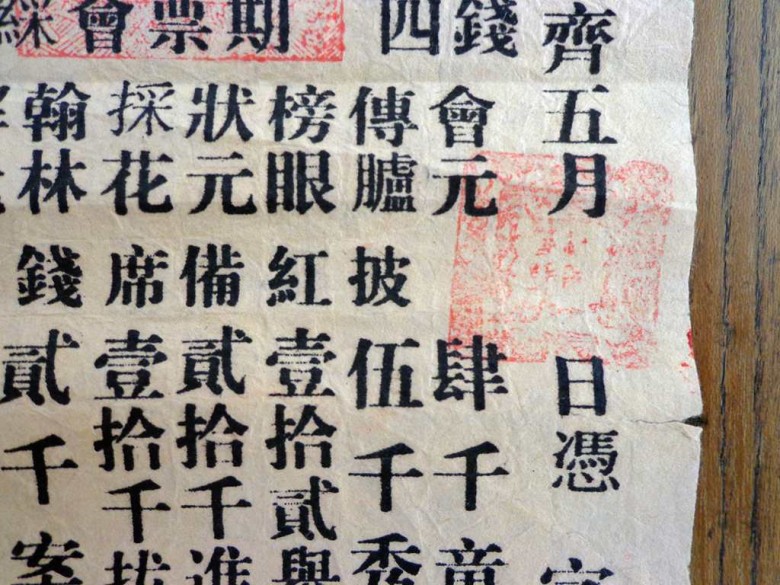 齊五月日憑
錢會元肆千童
四傳臚披伍千秀
榜眼紅壹拾貳舉
期狀元備貳拾千進
票採花席壹拾千拔
會翰林錢貳千案
綵